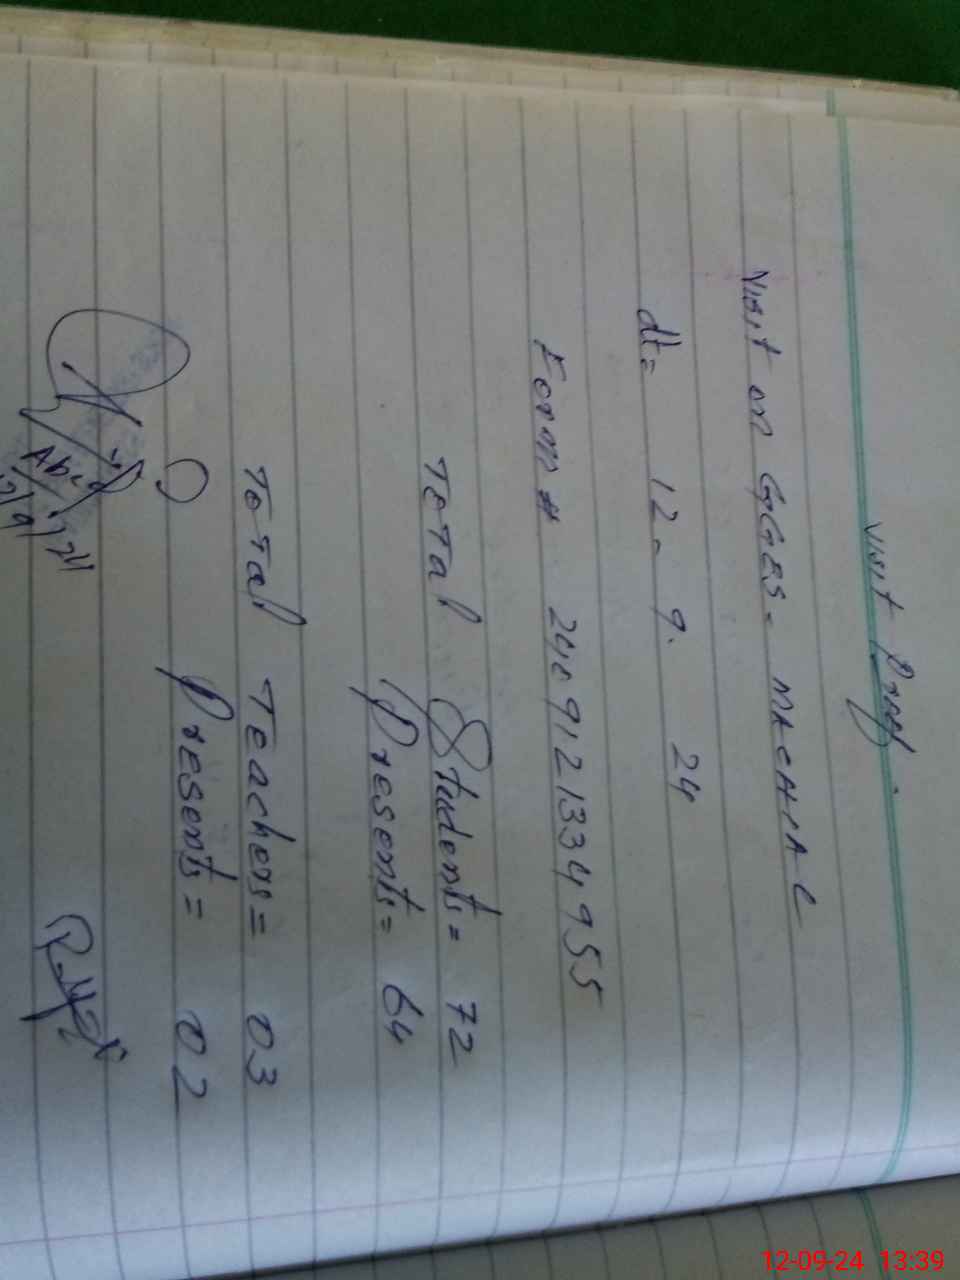 Visit Proof.
Visit on GGES- MACHIAC
dt= 12- 9. 24
Form #
Total Students= 72
Presents= 64
Total Teachers= 03
Presents= 02
12-09-24 13:39